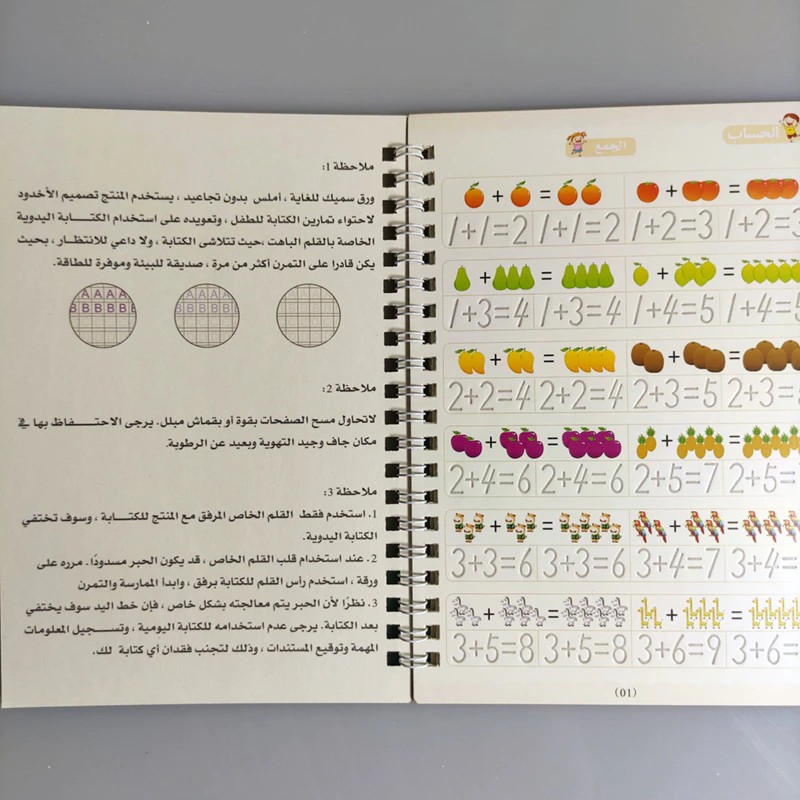 ملاحظة 1:
ورق سميك للغاية ، أملس بدون تجاعيد ، يستخدم المنتج تصميم الأخدود
لاحتواء تمارين الكتابة للطفل ، وتعويده على استخدام الكتـــابة اليدوية
الخاصة بالقلم الباهت ،حيث تتلاشى الكتابة ، ولا داعي للانتظار ، بحيث
يكن قادرا على التمرن أكثر من مرة ، صديقة للبيئة وموفرة للطاقة.
A A A A
B B B B
ملاحظة 2:
لاتحاول مسح الصفحات بقوة أو بقماش مبلل. يرجى الاحتـــفاظ بها في
مكان جاف وجيد التهوية وبعيد عن الرطوبة.
ملاحظة 3:
1. استخدم فقط القلم الخاص المرفق مع المنتج للكتـــابة ، وسوف تختفي
الكتابة اليدوية.
2. عند استخدام قلب القلم الخاص ، قد يكون الحبر مسدودًا. مرره على
ورقة ، استخدم رأس القلم للكتابة برفق ، وابدأ الممارسة والتمرن
3. نظرًا لأن الحبر يتم معالجته بشكل خاص ، فإن خط اليد سوف يختفي
بعد الكتابة. يرجى عدم استخدامه للكتابة اليومية ، وتســـجيل المعلومات
المهمة وتوقيع المستندات ، وذلك لتجنب فقدان أي كتابة لك.
الحساب
الجمع
+ = + =
1+1=2 1+1=2 1+2=3 1+2=3
+ = + =
1+3=4 1+3=4 1+4=5 1+4=5
+ = + =
2+2=4 2+2=4 2+3=5 2+3=
+ = + =
2+4=6 2+4=6 2+5=7 2+5=
+ = + =
3+3=6 3+3=6 3+4=7 3+4=
+ = + =
3+5=8 3+5=8 3+6=9 3+6=
(01)